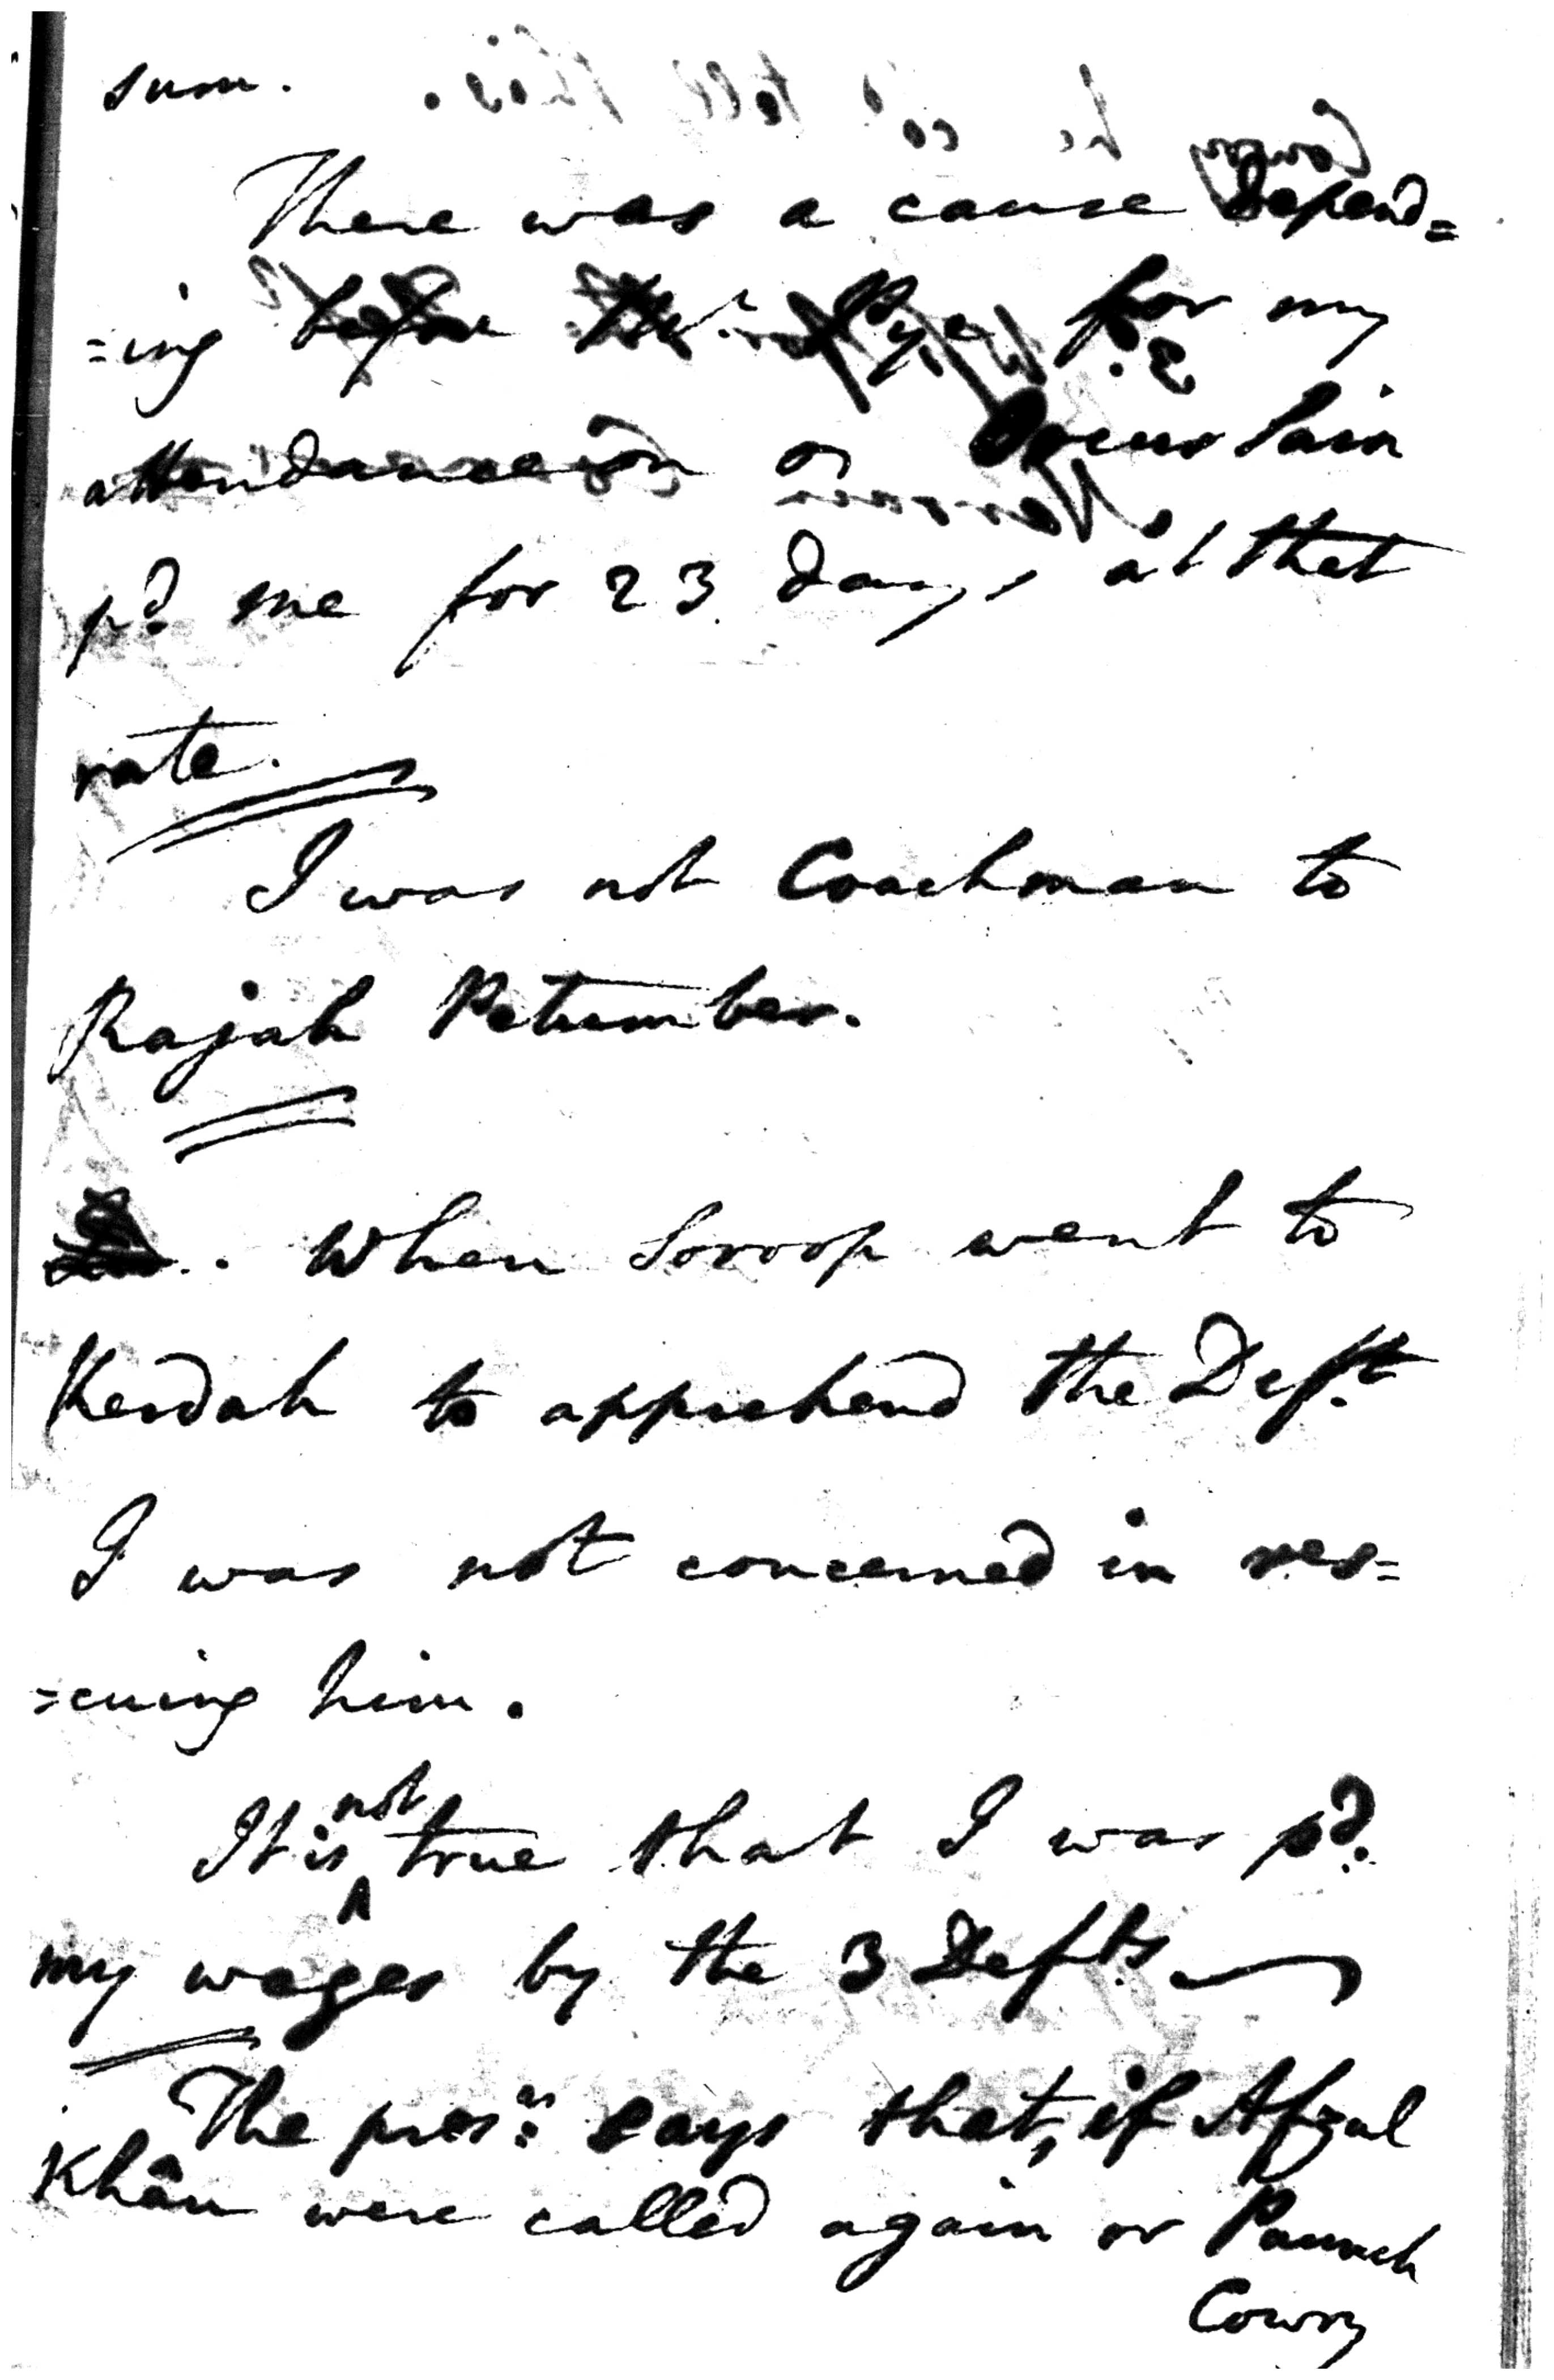 sum.
There was a cause Depend=
=ing before Mr. Pye for my
attendance on
pd. me for 23 days at that
rate.
I was not Coachman to
Rajah Petumber.
When Soroop went to
Kerdah to apprehend the Deft.
I was not concerned in res=
=cuing him.
not
It is true that I was pd.
my wages by the 3 Defts
The prosr. says that, if Afzul
Khân were called again or Paunch
Cowry